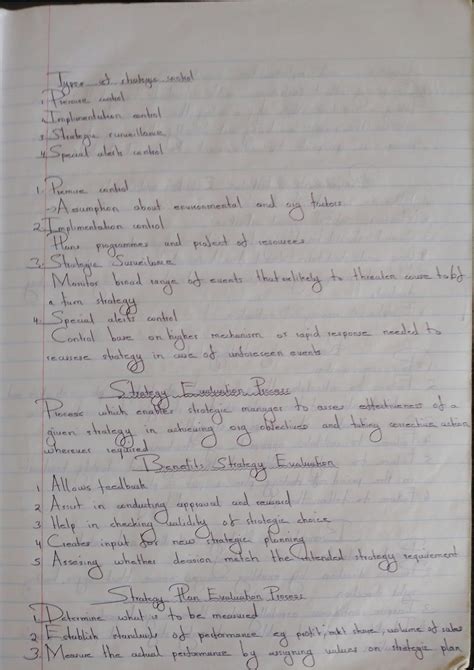 Types of strategic control
1. Premise control
2. Implimentation control
3. Strategic surveillance
4. Special alerts control
1. Premise control
→ Assumption about environmental and org factors
2. Implimentation control
Plans programmes and project of resources
3. Strategic Surveillance
Monitor broad range of events that likely to threaten cause
a firm strategy
4. Special alerts control
Control base on higher mechanism or rapid response needed to
strategy in case of unforeseen events
Strategy Evaluation Process
Process which enables strategic manager to asses effectiveness of a
given strategy in achieving org objectives and taking corrective action
whenever required
Benefits Strategy Evaluation
1 Allows feedback
2 Assist in conducting appraisal and reward
3 Help in checking validity of strategic choice
4 Creates input for new strategic planning
5 Assesing whether decision match the intended strategy requirement
Strategy Plan Evaluation Process
1. Determine what is to be measured
2. Establish standards of performance eg profit, mkt share, volume of sales
3. Measure the actual performance by assigning values on strategic plan